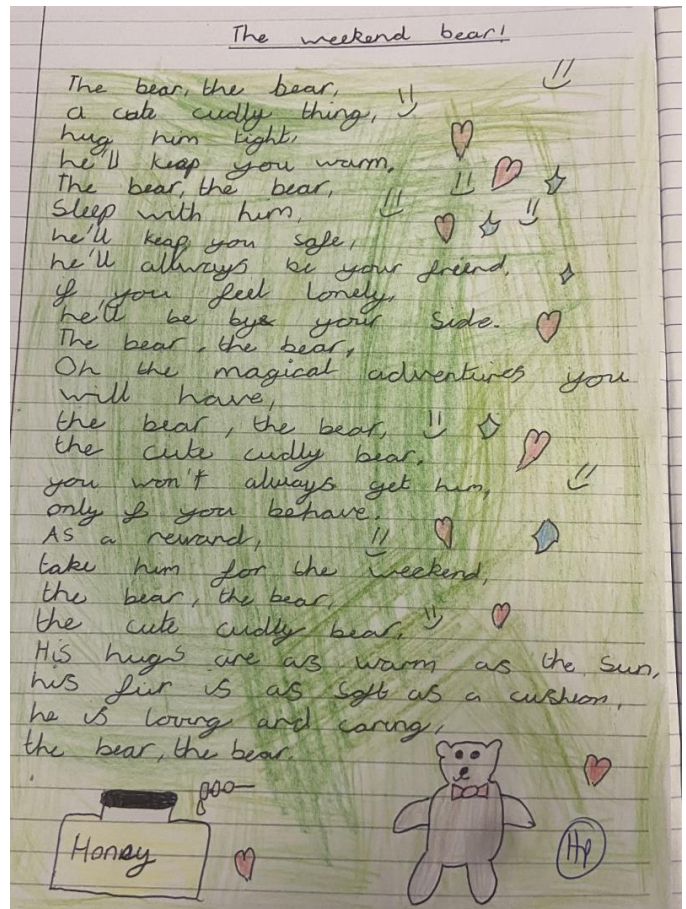 The weekend bear!
The bear, the bear,
a cute cudly thing,
hug him tight,
he'll keep you warm,
The bear, the bear,
Sleep with him,
he'll keep you safe,
he'll allways be your friend,
if you feel lonely,
he'll be bye your side.
The bear, the bear,
Oh the magical adventures you
will have,
the bear, the bear,
the cute cudly bear,
you won't always get him,
only if you behave.
As a reward,
take him for the weekend,
the bear, the bear,
the cute cudly bear.
His hugs are as warm as the sun,
his fur is as soft as a cushion,
he is loving and caring,
the bear, the bear.
Honey
HP